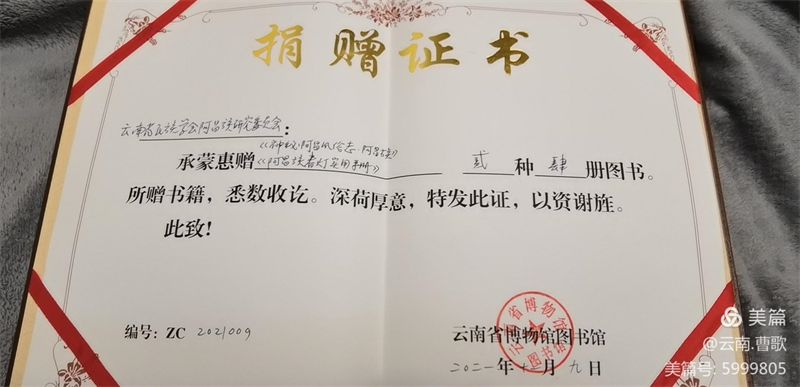 捐赠证书
云南省民族学会阿昌族研究委员会:
阿昌族
承蒙惠赠《阿昌族春灯实用手册》 贰 种 肆 册图书。
所赠书籍，悉数收讫。深荷厚意，特发此证，以资谢旌。
此致!
编号: ZC 2021009
云南省博物馆图书馆
云南省博物馆
图书馆
二〇二一年 月九日
美篇
@云南.曹歌
美篇号: 5999805